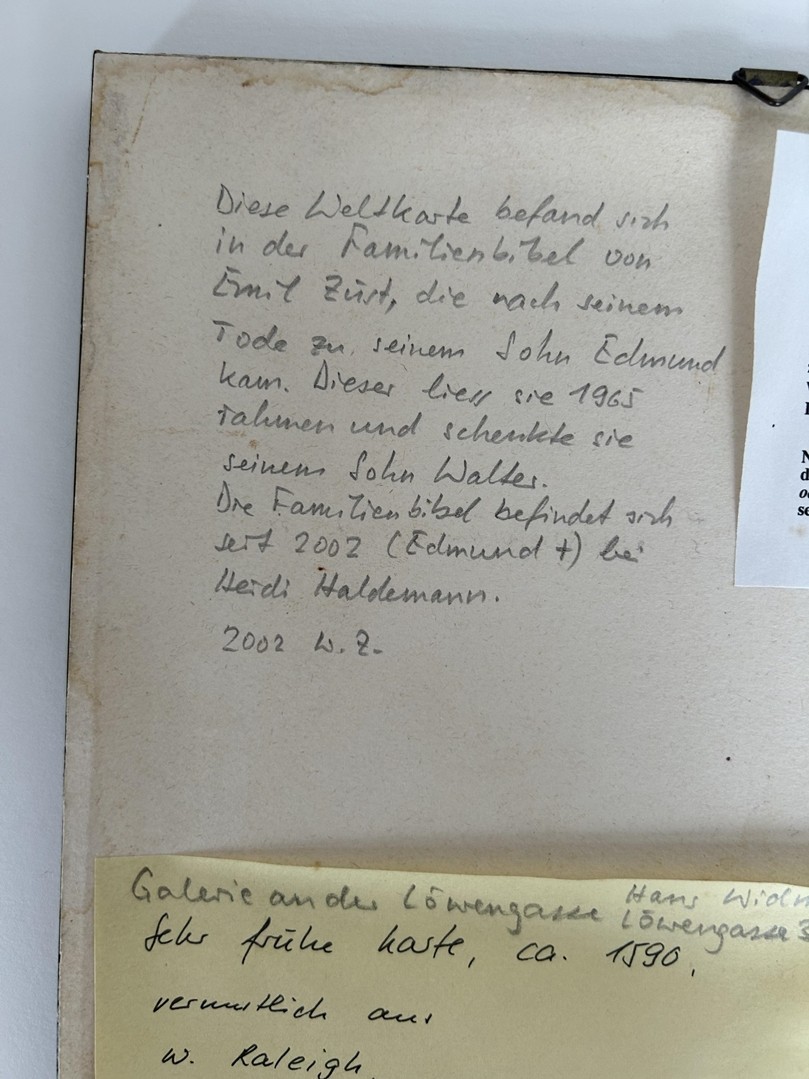 Diese Weltkarte befand sich
in der Familienbibel von
Emil Züst, die nach seinem
Tode zu seinem Sohn Edmund
kam. Dieser liess sie 1965
rahmen und schenkte sie
seinem Sohn Walter.
Die Familienbibel befindet sich
seit 2002 (Edmund †) bei
Heidi Haldemann.
2002 W.Z.
Galerie an der Löwengasse Hans
Löwengasse 3
Sehr frühe Karte, ca. 1590,
vermutlich aus
W. Raleigh